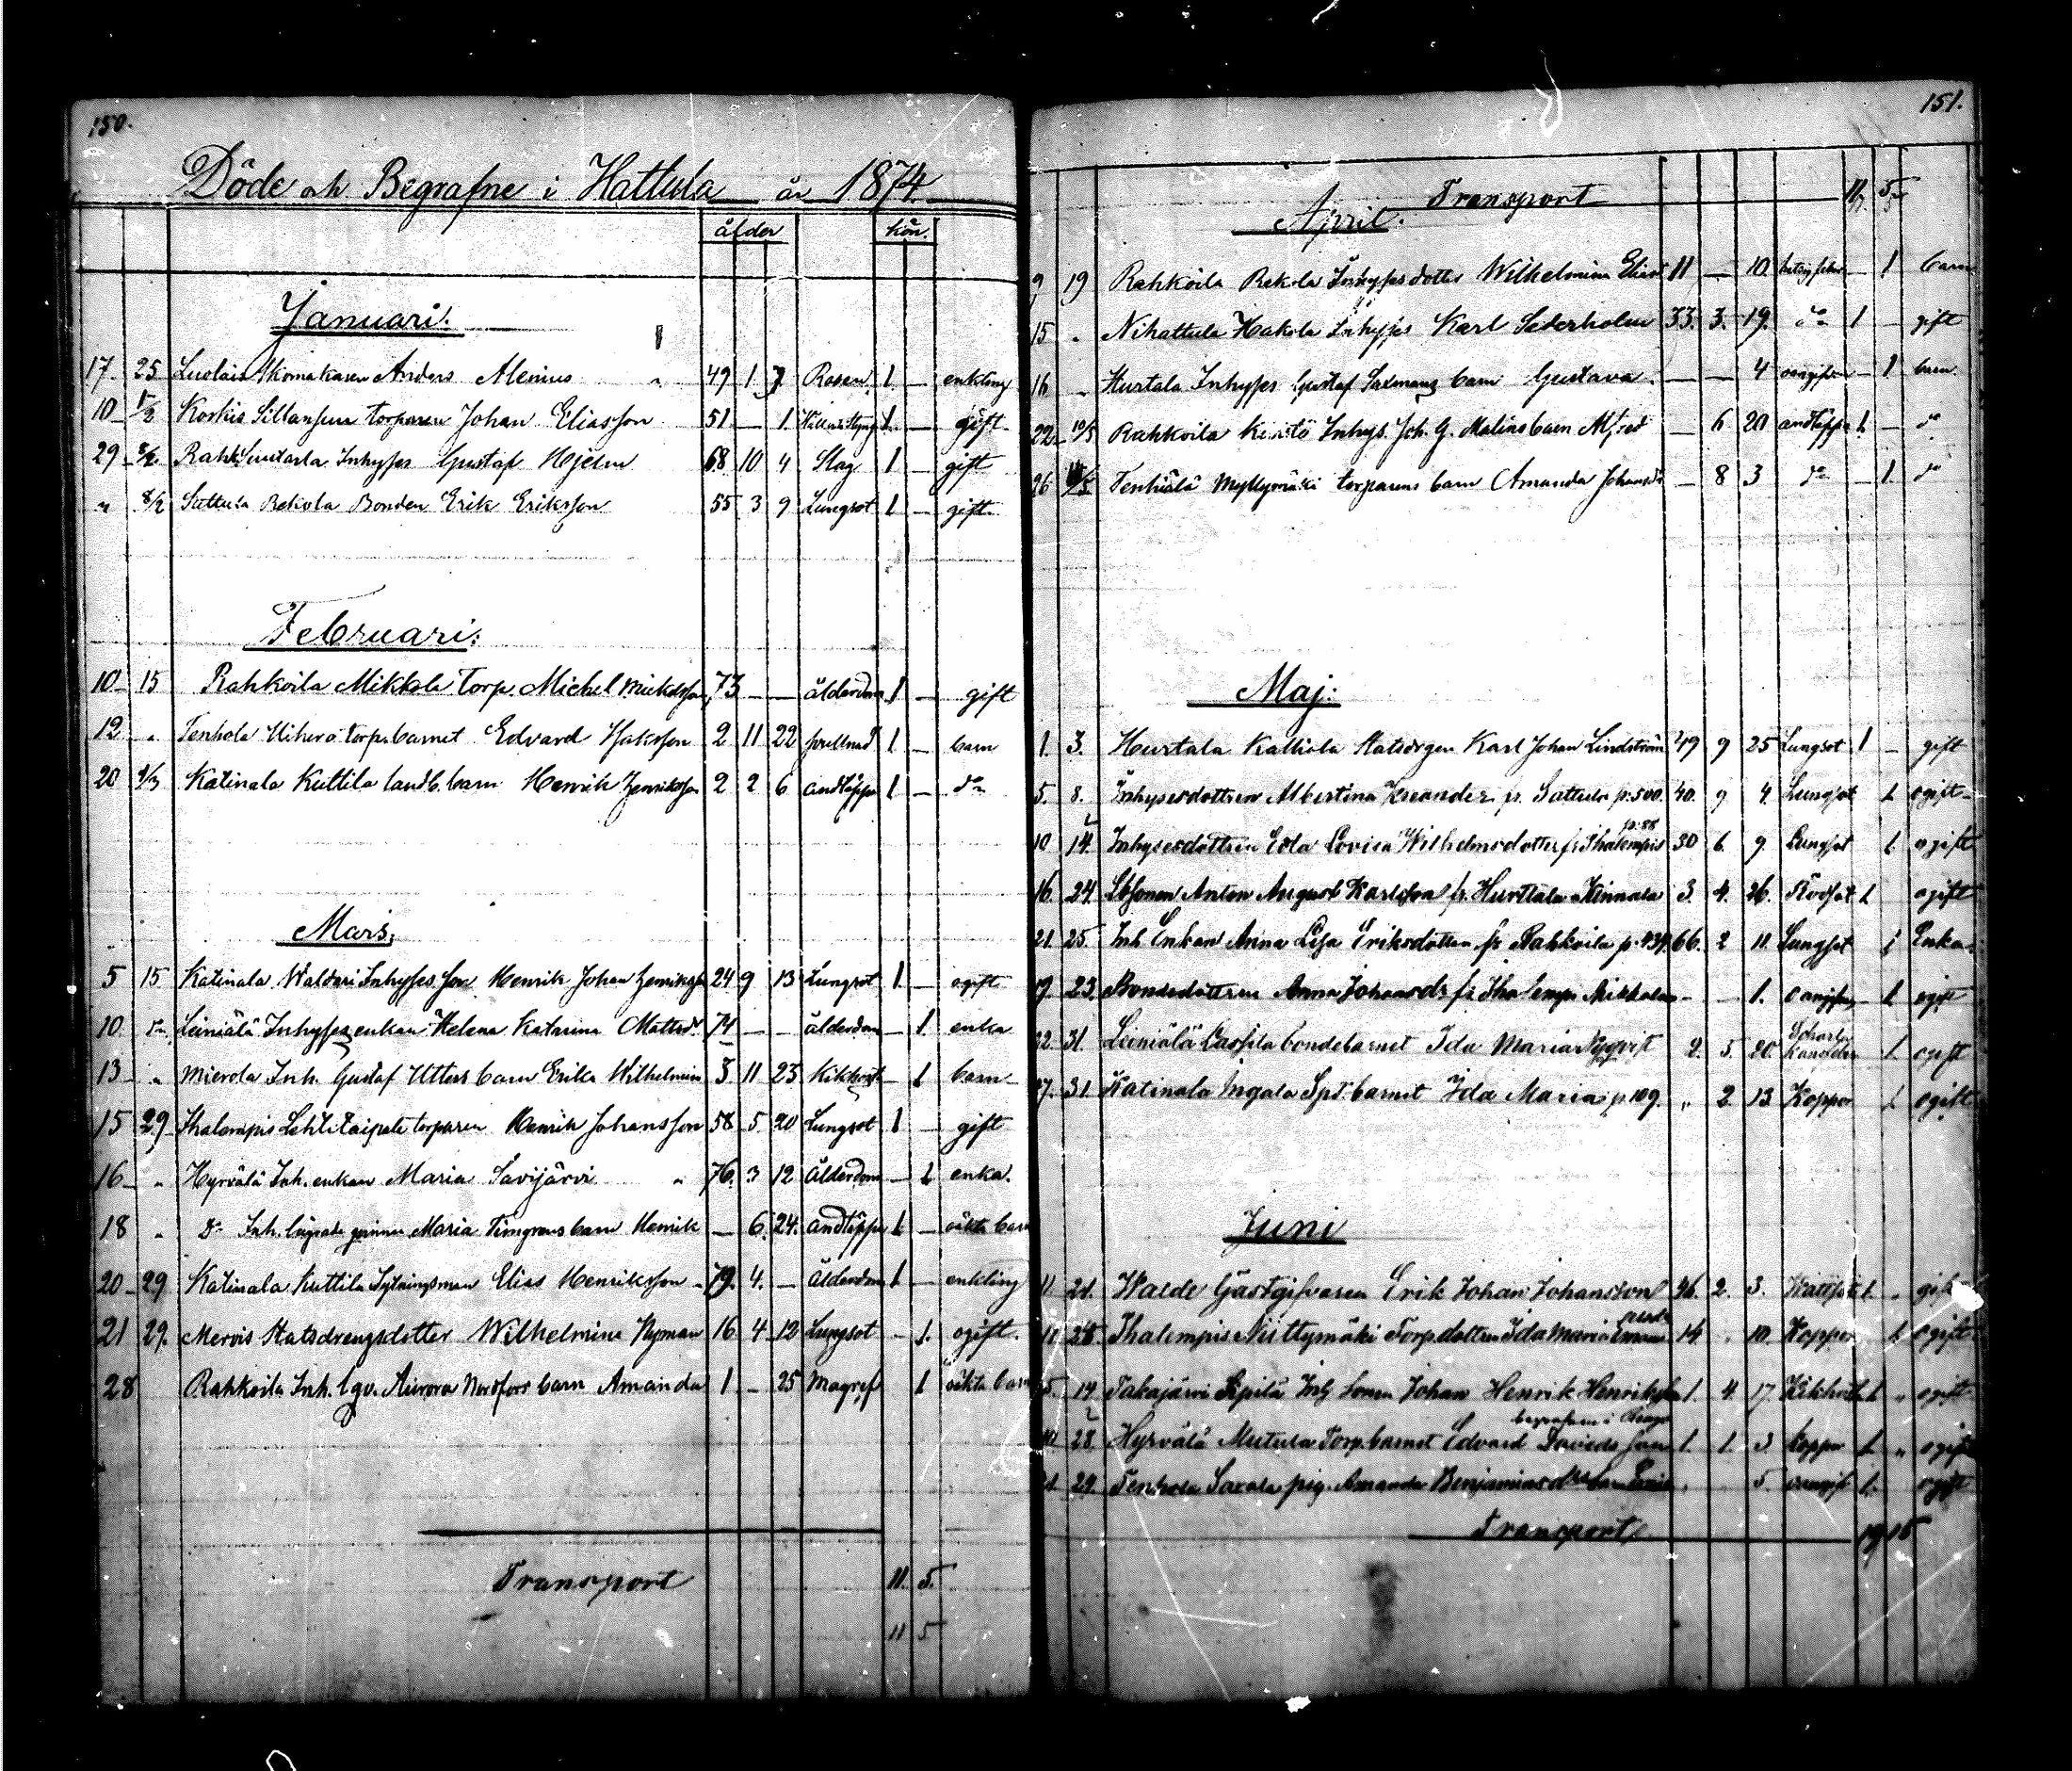 150.
Döde och Begrafne i Hattula år 1874.
ålder kön.
Januari:
17. 25 Luolais Skomakaren Anders Alenius 49 1 7 Rosen 1 — enkling
10 1/2 Korkis Sillansuu torparen Johan Eliasson 51 — 1. 1 — gift
29 8/2 Gustaf Hjelm 68 10 4 Slag 1 — gift
" 8/2 Sattula Rekola Bonden Erik Eriksson 55 3 9 Lungsot 1 — gift
Februari:
10 15 Rahkoila Mikkola torp. Michel Mickelsson 73 — — ålderdom 1 — gift
12 " Tenhola Uihero torp. barnet Edvard Isaksson 2 11 22 1 — barn
20 1/3 Katinala Kuttila landb. barn Henrik Henriksson 2 2 6 andtäppa 1 — do
Mars:
5 15 Katinala Inhyses son Henrik Johan Henriksson 24 9 13 Lungsot 1 — ogift
10 do Leiniälä Inhyses enkan Helena Katarina Mattsdr 74 — — ålderdom — 1. enka
13 " Mierola Inh. Gustaf Utters barn Erika Wilhelmina 3 11 23 Kikhosta — 1 barn
15 29 Ihalempis Lehtitaipale torparen Henrik Johansson 58 5 20 Lungsot 1 — gift
16 " Hyrvälä Inh. enkan Maria Savijärvi 76. 3 12 ålderdom — 1 enka.
18 " Do Inh. qvinnan Maria Timgrens barn Henrik — 6. 24. andtäppa 1 — oäkta barn
20 29 Katinala Kuttila Sytningsman Elias Henriksson 79. 4. — ålderdom 1 — enkling
21 29. Mervis Statsdrengsdotter Wilhelmina Nyman 16 4 12 Lungsot — 1. ogift.
28 Rahkoila Inh. qv. Aurora Nordfors barn Amanda 1 — 25 Magref 1 oäkta barn
Transport 11. 5.
11 5
151.
Transport 11. 5
April:
9 19 Rahkoila Rekola Inhyses dotter Wilhelmina 11 — 10 — 1 barn
15 " Nihattula Hakola Inhyses Karl Sederholm 33. 3. 19. do 1 — gift
16 — Hurtala Inhyses Gustaf Saxmans barn Gustava — — 4 — 1 barn
22 10/5 Rahkoila Inhys. Joh. G. Malins barn Alfred — 6 20 andtäppa 1. — do
26 Tenhiälä Myllymäki torparens barn Amanda — 8 3 do — 1. do
Maj:
1. 3. Hurtala Kalliola Karl Johan Lindström 49 9 25 Lungsot 1 — gift
5. 8. Inhysesdottren Albertina fr. Sattula p. 500. 40. 9 4. Lungsot 1. ogift
10 14. Inhysesdottren Eva Lovisa Wilhelmsdotter fr. Ihalempis 30 6. 9. Lungsot 1. ogift
16. 24. Anton August Karlsson fr. Hurttala 3. 4. 26. 1. ogift
21. 25 Inh. Enkan Anna Lisa Eriksdotter fr. Rahkoila p. 439. 66. 2 11. Lungsot 1 Enka
19. 23. Bondedottren Anna Johansdr. fr. Ihalempis Mikkola — — 1. 1. ogift
22. 31. Leiniälä bondebarnet Ida Maria Nyqvist 2. 5. 20. 1. ogift
27. 31. Katinala Ingala barnet Ida Maria p 109. " 2 13 Koppor 1. ogift
Juni
11 21. Walde Gästgifvaren Erik Johan Johansson 46. 2. 3. 1. " gift
Ihalempis Niittymäki Torp.dottren Ida Maria 14 10. Koppor 1. ogift
14. Takajärvi Sipilä Inh. Sonen Johan Henrik Henriksson 1. 4. 17. Kikhosta 1. " ogift
begrafven i
28. Hyrvälä Mutula Torp.barnet Edvard Davidsson 1. 1. 3 Koppor 1. " ogift
29. Tenhola Saxala pig. Amanda Benjaminsdr 5. 1. ogift
Transport 19 15